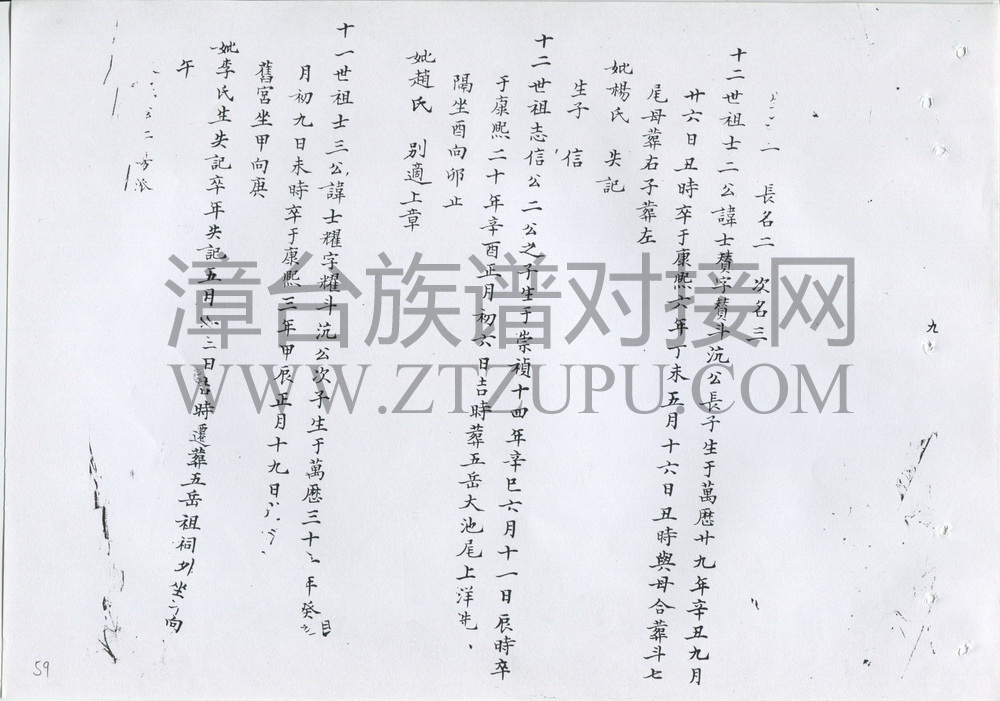 九
二 長名二 次名三
十二世祖士二公諱士贊字贊斗沆公長子生于萬曆廿九年辛丑九月
廿六日丑時卒于康熙六年丁未五月十六日丑時與母合葬斗七
尾母葬右子葬左
妣楊氏 失記
生子 信
十二世祖志信公二公之子生于崇禎十四年辛巳六月十一日辰時卒
于康熙二十年辛酉正月初六日吉時葬五岳大池尾上洋
隔坐酉向卯止
妣趙氏 別適上章
十一世祖士三公諱士耀字耀斗沆公次子生于萬曆三十 年癸
月初九日未時卒于康熙三年甲辰正月十九日
舊宮坐甲向庚
妣李氏生失記卒年失記五月 日吉時遷葬五岳祖祠 坐 向
午
二房派
漳台族谱对接网
WWW.ZTZUPU.COM
59